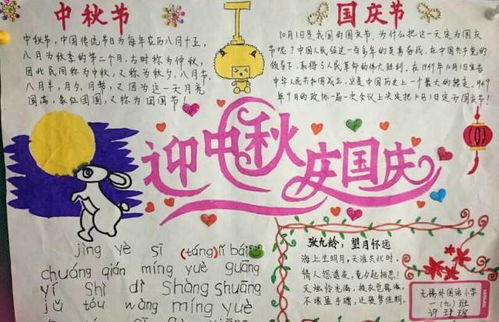 中秋节
中秋节，中国传统节日为每年农历八月十五，
八月为秋季的第二个月，古时称为仲秋，
因此民间称为中秋，又称为秋夕，八月节，
八月半，月夕，月节，又因为这一天月亮
圆满，象征团圆，又称为团圆节！
国庆节
10月1日是我国的国庆节，为什么把这一天定为国庆
节呢？中国人民经过一百多年的英勇奋战，在中国共产党的
领导下，取得了人民革命的伟大胜利，在1949年10月1日宣告
中华人民共和国成立，这是中国历史上一个最大的转变，1949
年9月的政协一届一次会议上决定把10月1日定为国庆节！
迎中秋
庆国庆
jìng yè sī (táng) lǐ bái
chuáng qián míng yuè guāng
yí shì dì shàng shuāng
jǔ tóu wàng míng yuè
张九龄：望月怀远
海上生明月，天涯共此时，
情人怨遥夜，竟夕起相思！
灭烛怜光满，披衣觉露滋，
不堪盈手赠，还寝梦佳期。
无锡外国语小学
一(九)班